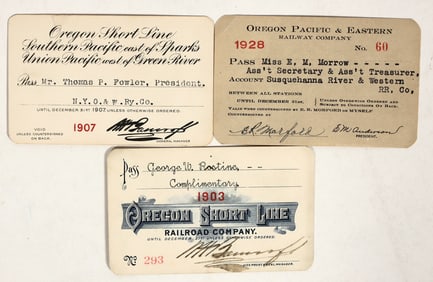 Oregon Short Line
Southern Pacific east of Sparks
Union Pacific west of Green River
Pass Mr. Thomas P. Fowler, President,
N.Y.O.& W.Ry.Co.
UNTIL DECEMBER 31ST 1907, UNLESS OTHERWISE ORDERED.
VOID
UNLESS COUNTERSIGNED
ON BACK.
1907
GENERAL MANAGER
OREGON PACIFIC & EASTERN
RAILWAY COMPANY
1928 No. 60
PASS Miss E. M. Morrow - - - - -
Ass't Secretary & Ass't Treasurer,
ACCOUNT Susquehanna River & Western
RR. Co,
BETWEEN ALL STATIONS
UNTIL DECEMBER 31ST, UNLESS OTHERWISE ORDERED AND
SUBJECT TO CONDITIONS ON BACK
VALID WHEN COUNTERSIGNED BY E. R. MORFORD OR MYSELF
COUNTERSIGNED BY
PRESIDENT.
Pass George W. Rostine --
Complimentary
1903
OREGON SHORT LINE
RAILROAD COMPANY.
UNTIL DECEMBER 31ST UNLESS OTHERWISE ORDERED.
No 293